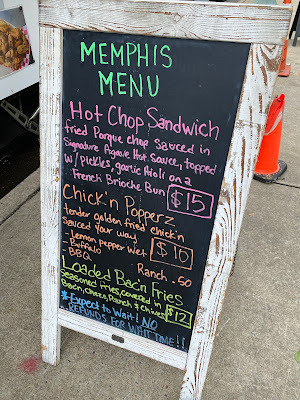 MEMPHIS
MENU
Hot Chop Sandwich
fried Porque chop sauced in
Signature Agave Hot Sauce, topped
w/ pickles, garlic Aioli on a
French Brioche Bun $15
Chick'n Popperz
tender golden fried chick'n
sauced your way $10
- Lemon pepper Wet
- Buffalo Ranch .50
- BBQ
Loaded Bac'n Fries
Seasoned Fries, covered in $12
Bac'n, Cheze, Ranch & Chives
*Expect to Wait! NO
REFUNDS FOR WAIT TIME!!